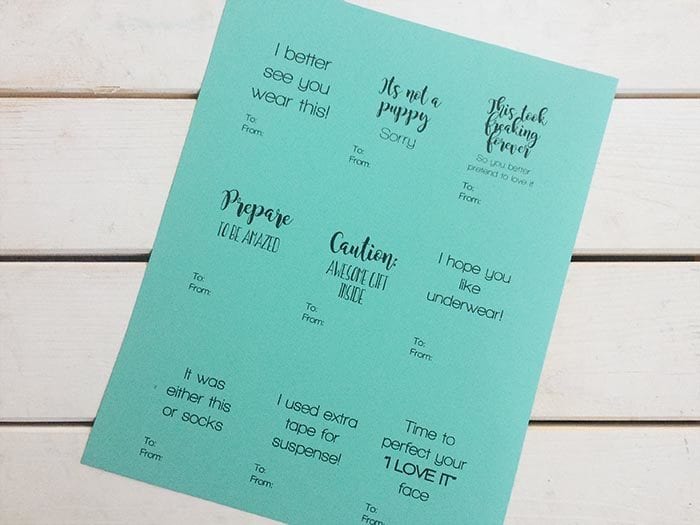 I better
see you
wear this!
To:
From:
Its not a
puppy
Sorry
To:
From:
This took
freaking
forever
So you better
pretend to love it
To:
From:
Prepare
TO BE AMAZED
To:
From:
Caution:
AWESOME GIFT
INSIDE
To:
From:
I hope you
like
underwear!
To:
From:
It was
either this
or socks
To:
From:
I used extra
tape for
suspense!
To:
From:
Time to
perfect your
"I LOVE IT"
face
To:
From: